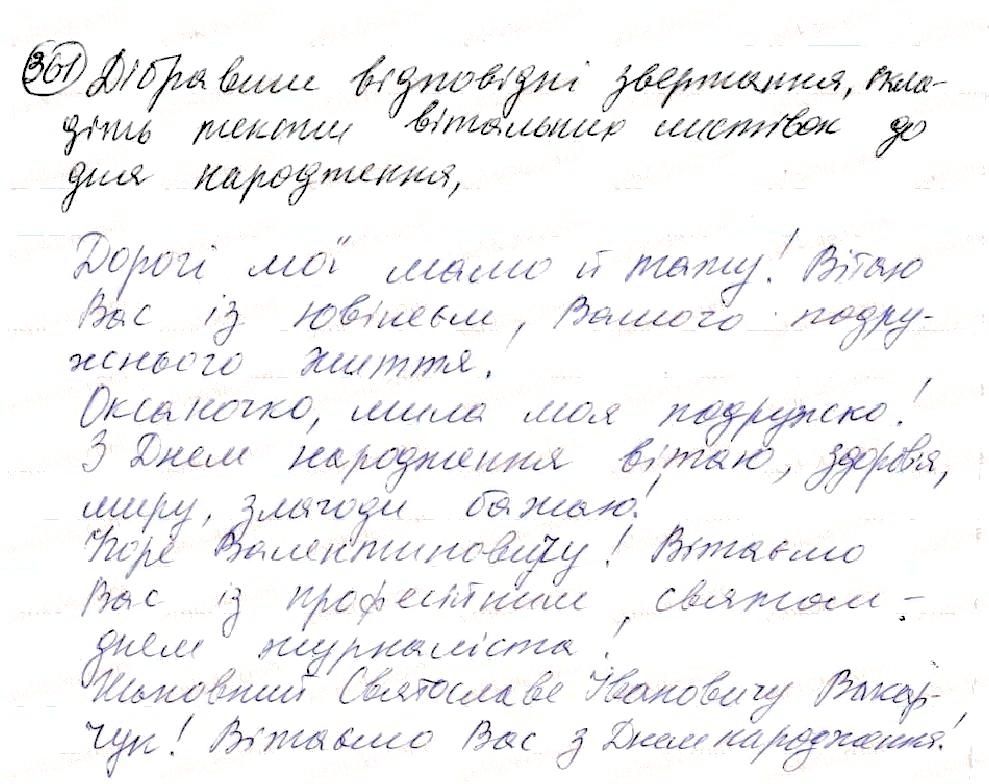 361 Дібравши відповідні звертання, скла-
діть тексти вітальних листівок до
дня народження,
Дорогі мої мамо й тату! Вітаю
Вас із ювілеєм, Вашого подру-
жнього життя!
Оксаночко, мила моя подружко!
З Днем народження вітаю, здоров'я,
миру, злагоди бажаю!
Ігоре Валентиновичу! Вітаємо
Вас із професійним святом -
днем журналіста!
Шановний Святославе Івановичу Вакар-
чук! Вітаємо Вас з Днем народження!